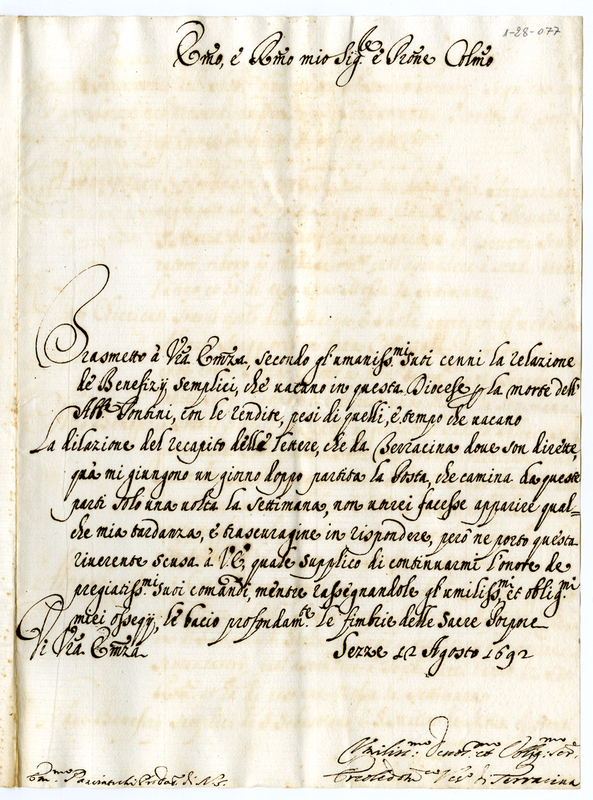 1-28-077
Em̃o, è Rm̃o mio Sig.re è Prõne Colm̃o
Trasmetto à Vrã Em̃za, secondo gl'umaniss.mi Suoi cenni la relazione
dè Benefizij semplici, chè vacano in questa Diocese p la morte dell'
Abb.e Pontini, con le rendite, pesi di quelli, è tempo che vacano
La dilazione del recapito delle lettere, che da Terracina doue son dirette,
quà mi giungono un giorno doppo partita la Posta, che camina da queste
parti solo una uolta la settimana, non uorei facesse apparire qual=
che mia tardanza, è trascuragine in rispondere, però ne porto questa
riuerente scusa à V.E. quale supplico di continuarmi l'onore de
pregiatiss.mi Suoi comandi, mentre rassegnandole gl'umiliss.mi et oblig.mi
miei ossequij, lè bacio profondam.te le fimbrie delle Sacre Porpore
Di Vrã Em̃za
Sezze 12 Agosto 1692
Vmiliss.mo Deuot.mo et Oblig.mo Ser.e
Vés.o di Terracina
Em.mo Panciatichi Prodat.o di N.S.